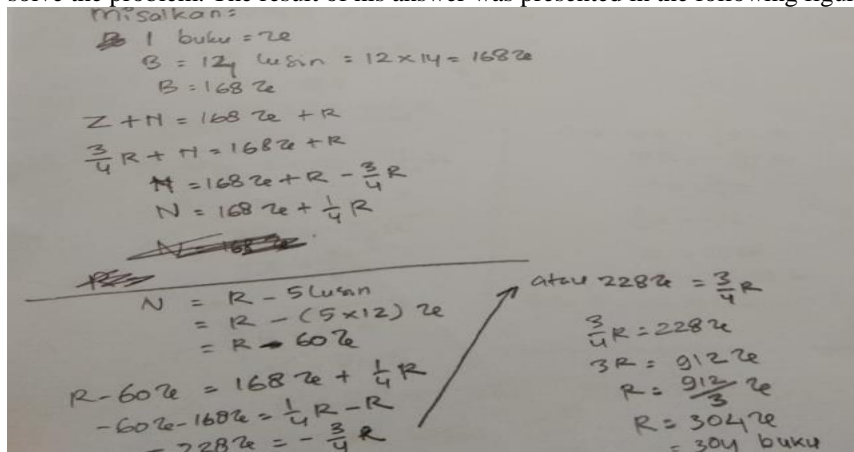 solve the problem. The result of his answer was presented in the following figu
Misalkan:
1 buku = ze
B = 14 lusin = 12 × 14 = 168 ze
B = 168 ze
Z + N = 168 ze + R
3/4 R + N = 168 ze + R
N = 168 ze + R - 3/4 R
N = 168 ze + 1/4 R
N = R - 5 lusin
= R - (5 × 12) ze
= R - 60 ze
R - 60 ze = 168 ze + 1/4 R
-60 ze - 168 ze = 1/4 R - R
- 228 ze = - 3/4 R
atau 228 ze = 3/4 R
3/4 R = 228 ze
3R = 912 ze
R = 912/3 ze
R = 304 ze
= 304 buku